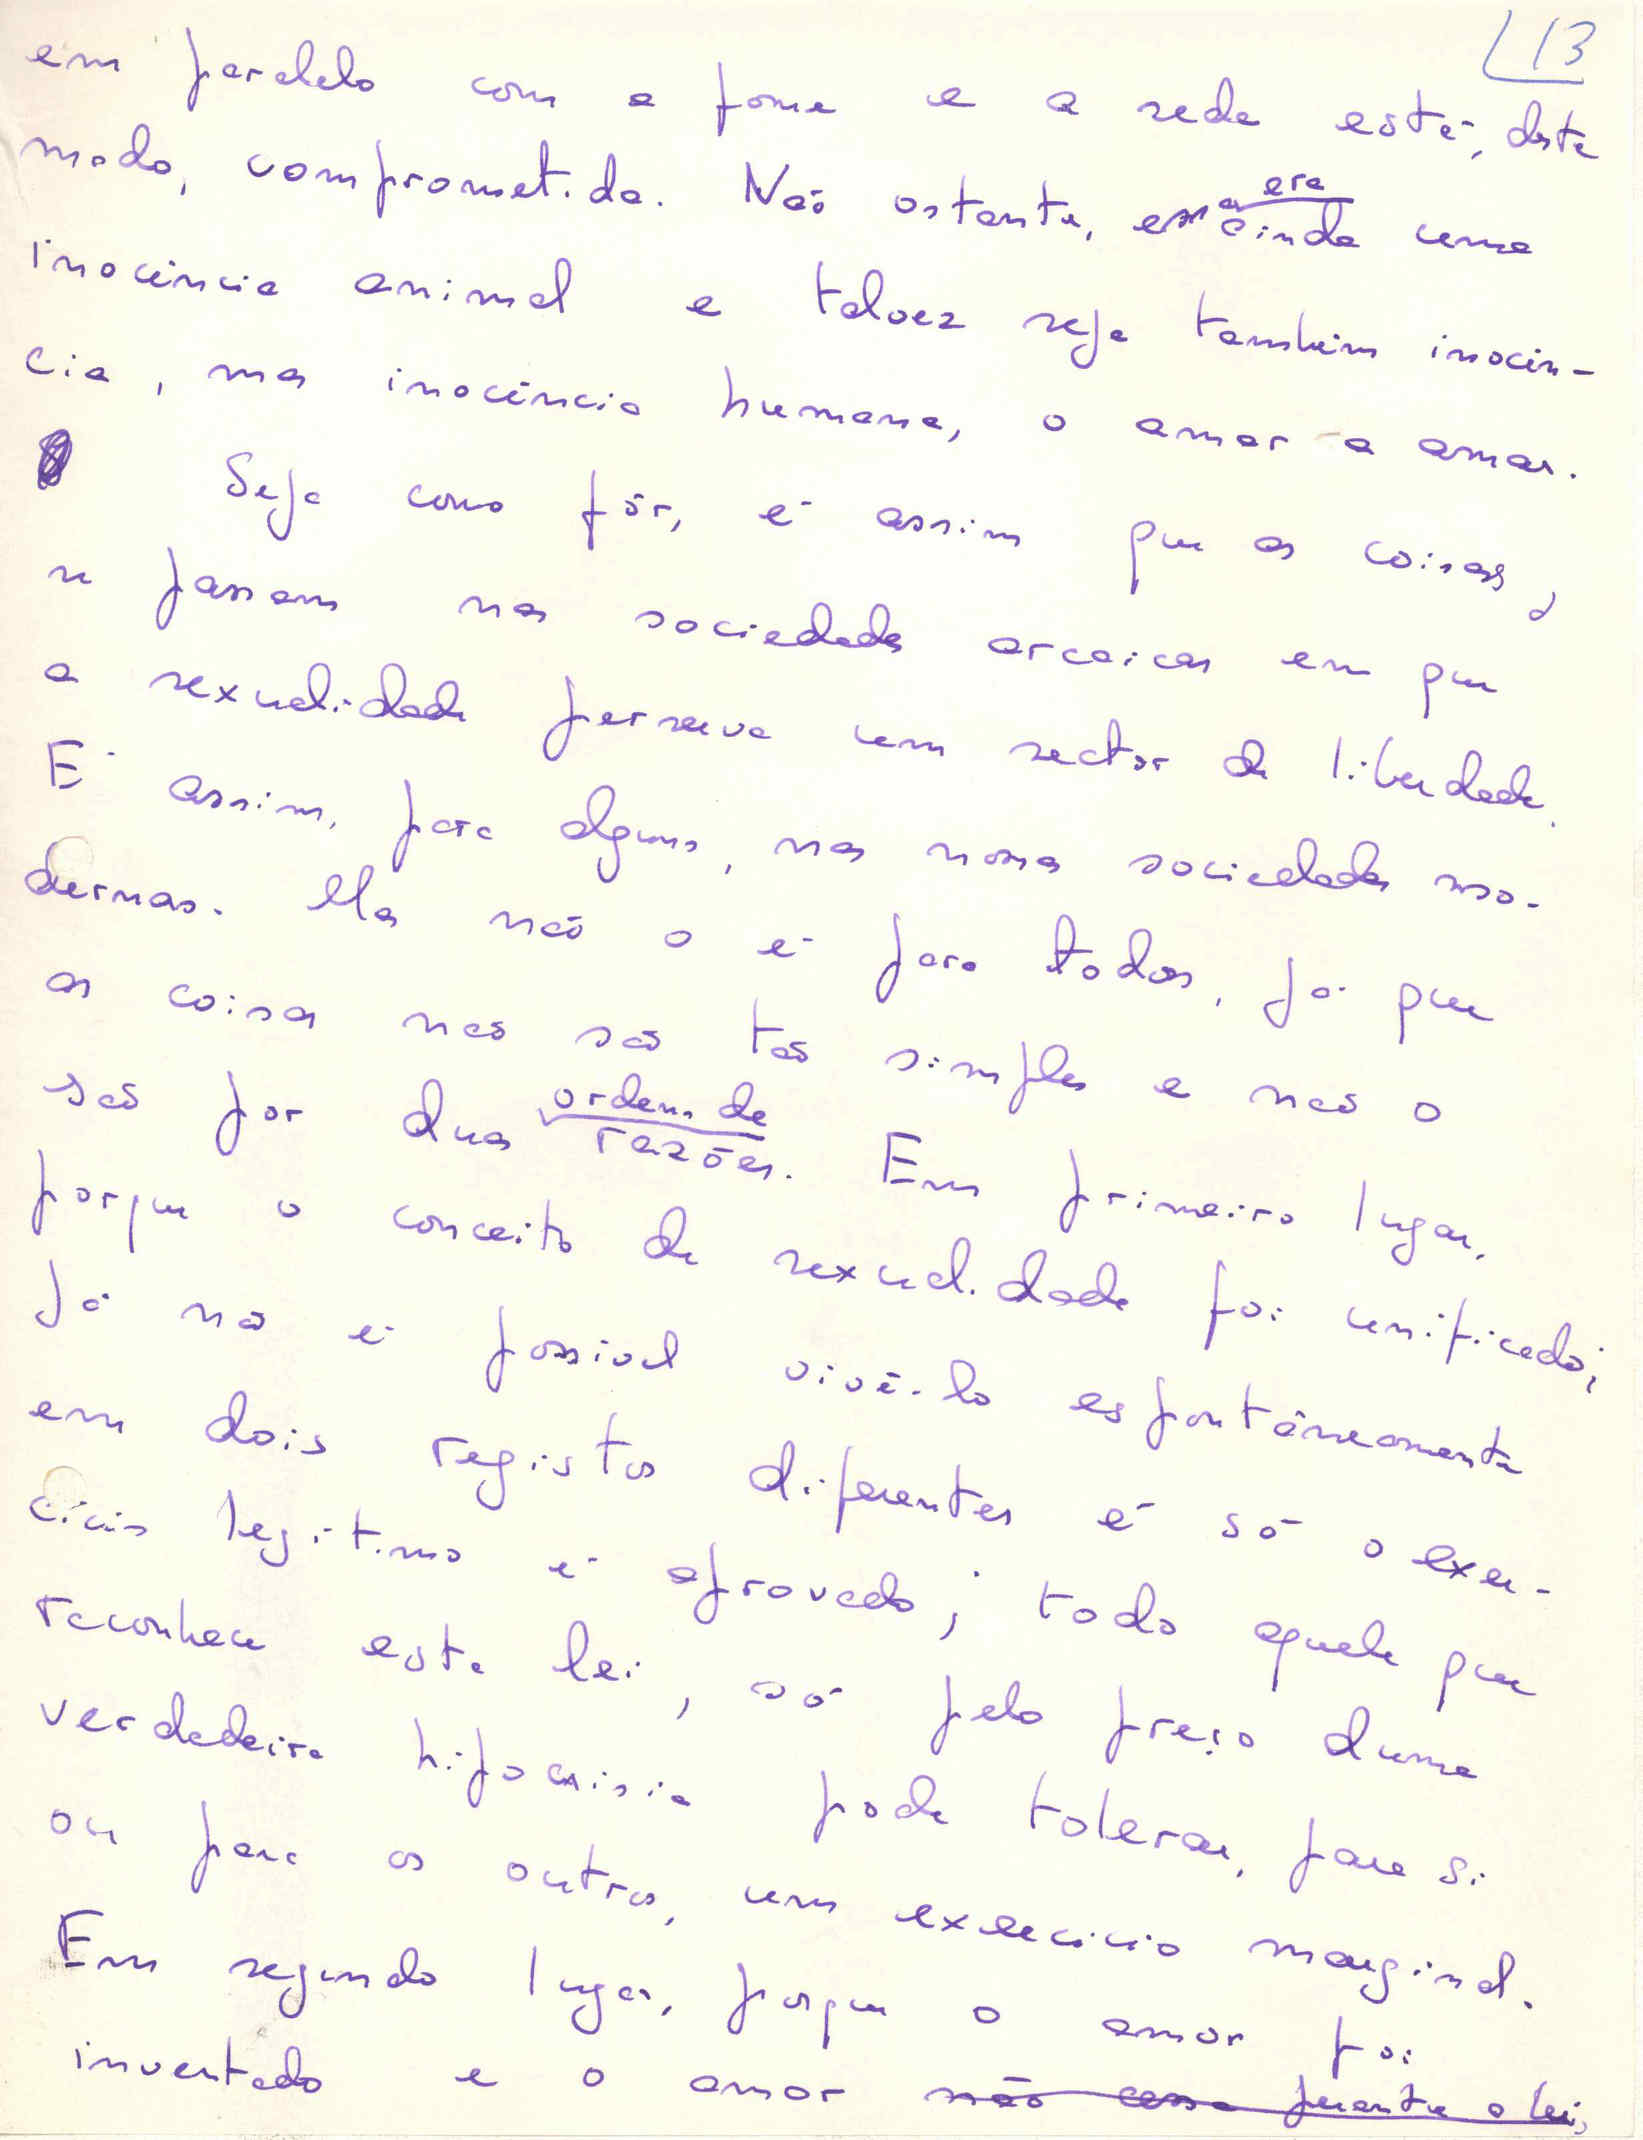 13
em paralelo com a fome e a sede está, deste
modo, comprometida. Não ostante, essa era ainda uma
inocência animal e talvez seja também inocên-
cia, mas inocência humana, o amar a amar.
Seja como fôr, é assim que as coisas,
se passam nas sociedades arcaicas em que
a sexualidade perserva um sector de liberdade.
É assim, para alguns, nas nossas sociedades mo-
dernas. Mas não o é para todos, já que
as coisas não são tão simples e não o
são por duas ordens de razões. Em primeiro lugar,
porque o conceito de sexualidade foi unificado;
já não é possivel vivê-lo espontâneamente
em dois registos diferentes e só o exer-
cício legítimo é aprovado; todo aquele que
reconhece esta lei, só pelo preço duma
verdadeira hipocrisia pode tolerar, para si
ou para os outros, um exercicio marginal.
Em segundo lugar, porque o amor foi
inventado e o amor não casa perante a lei,